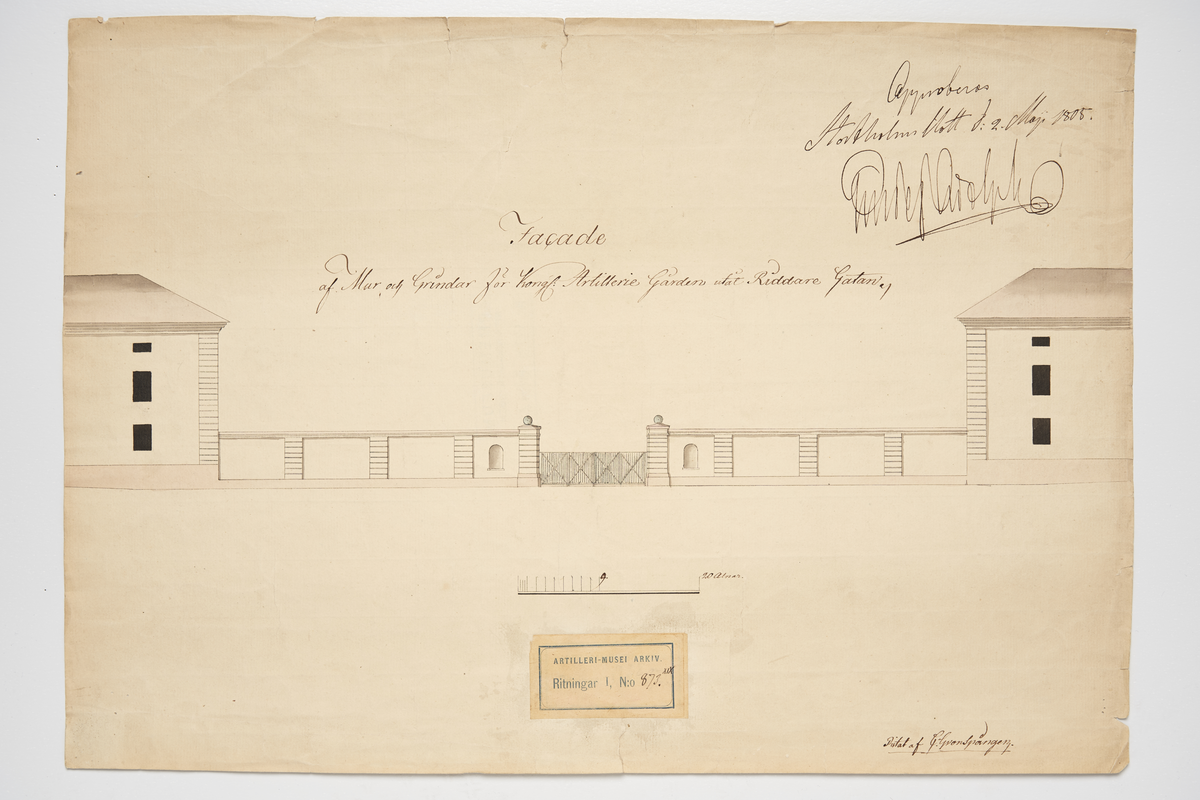 Approberas
Stockholms Slott d: 2. Maji 1805.
Gustaf Adolph
Façade
af Mur och Grindar för Kongl: Artillerie Gården utåt Riddare Gatan.
20 Alnar.
ARTILLERI-MUSEI ARKIV.
Ritningar I, N:o 873.
Ritat af